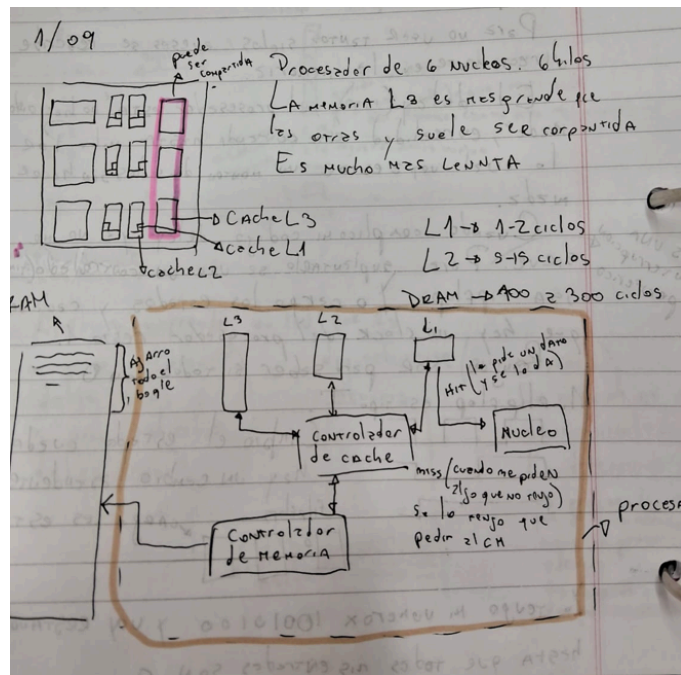 1/09
puede
ser
compartida
Procesador de 6 Nucleos. 6 hilos
LA memoria L3 es mas grande que
las otras y suele ser compartida
Es mucho mas lennta
Cache L3
Cache L1
Cache L2
L1 → 1-2 ciclos
L2 → 5-15 ciclos
DRAM → 400 a 300 ciclos
RAM
Agarro
todo el
bogle
L3
L2
L1
Hit (le pide un dato
y se lo dA)
Controlador
de cache
Nucleo
miss (cuando me piden
algo que no tengo)
se lo tengo que
pedir al CM
proces
Controlador
de Memoria